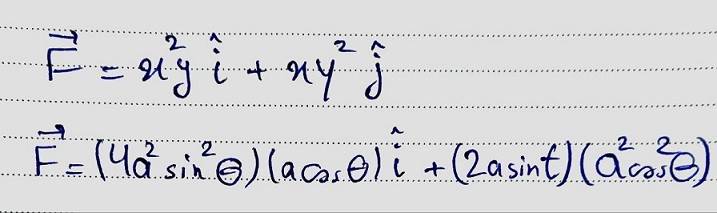 F⃗ = x²y î + xy² ĵ
F⃗ = (4a² sin²θ)(a cosθ) î + (2a sint)(a² cos²θ)